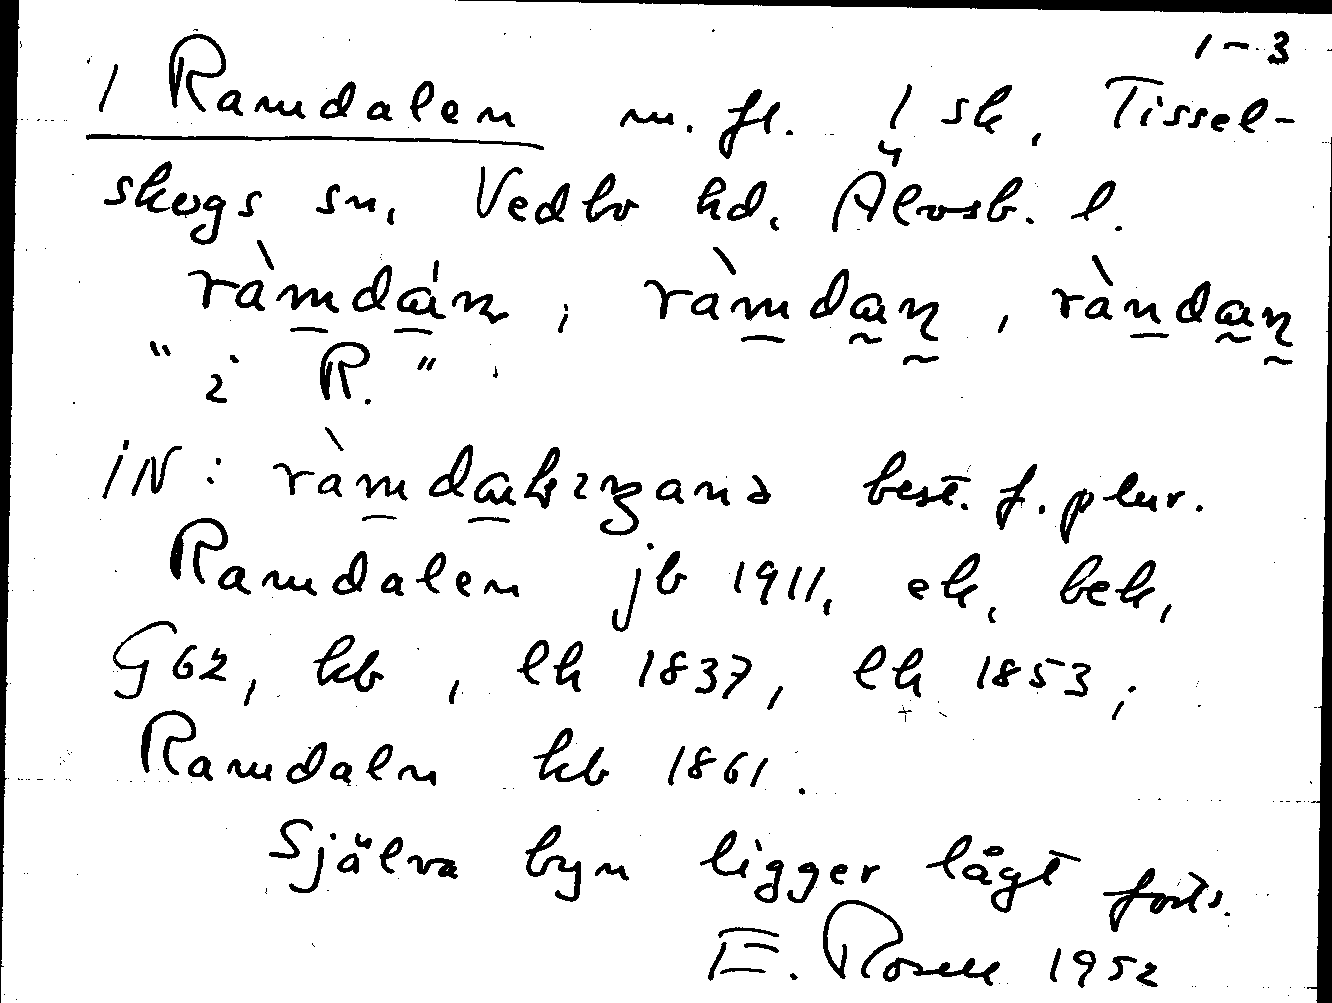 1-3
1 Ramdalen m. fl. 1 sk, Tissel-
skogs sn, Vedbo hd. Älvsb. l.
ràmdán, ràmdan, ràndan
"i R."
iN: best. f. plur.
Ramdalen jb 1911, ek, bek,
G62, kb, lh 1837, lh 1853;
Ramdaln kb 1861.
Själva byn ligger lågt forts.
E. Rosell 1952